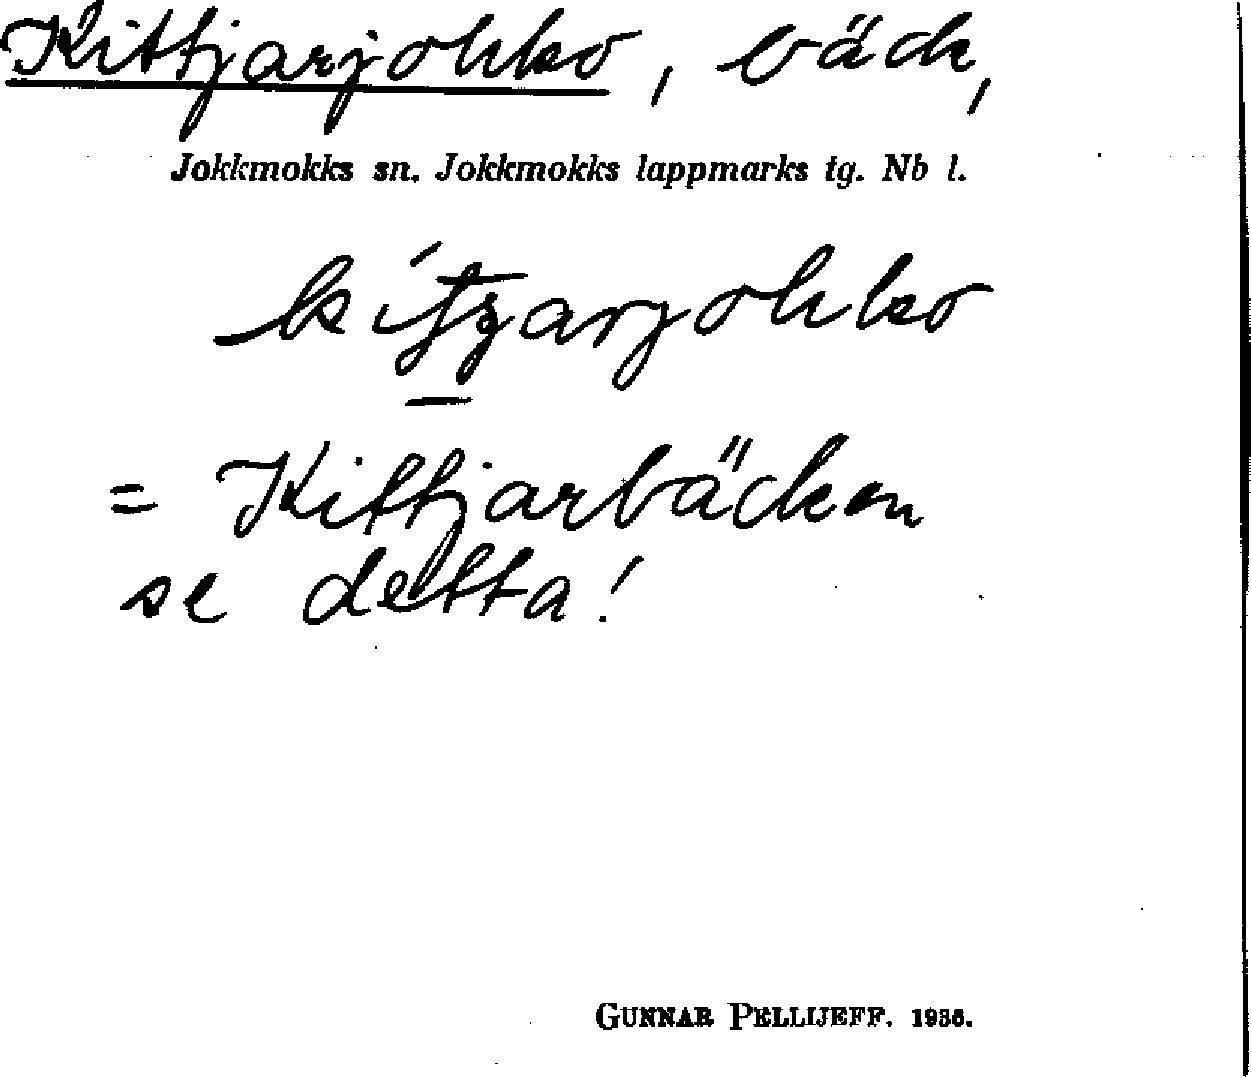 Kittjarjokko, bäck,
Jokkmokks sn. Jokkmokks lappmarks tg. Nb l.
= Kittjarbäcken
se detta!
GUNNAR PELLIJEFF. 1936.